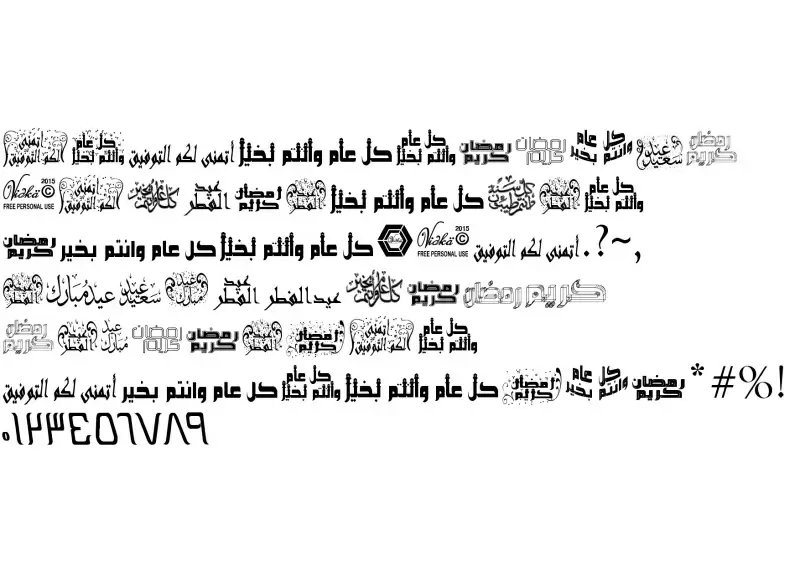 أتمنى لكم التوفيق كل عام وأنتم بخير أتمنى لكم التوفيق كل عام وأنتم بخير كل عام وأنتم بخير رمضان كريم رمضان كريم كل عام وانتم بخير عيد سعيد رمضان كريم
2015 © FREE PERSONAL USE أتمنى لكم التوفيق كل عام وانتم بخير عيد الفطر رمضان كريم عيد الفطر كل عام وأنتم بخير كل سنة وانتم طيبين عيد الفطر كل عام وأنتم بخير
رمضان كريم كل عام وانتم بخير كل عام وأنتم بخير 2015 © FREE PERSONAL USE أتمنى لكم التوفيق .?~,
عيد الفطر عيد مبارك عيد سعيد عيد مبارك عيد الفطر عيد الفطر كل عام وانتم بخير رمضان كريم رمضان كريم
رمضان كريم عيد الفطر عيد مبارك رمضان كريم رمضان كريم عيد الفطر رمضان كريم أتمنى لكم التوفيق كل عام وأنتم بخير
أتمنى لكم التوفيق كل عام وانتم بخير كل عام وأنتم بخير كل عام وأنتم بخير رمضان كريم كل عام وانتم بخير رمضان كريم *#%!
٠١٢٣٤٥٦٧٨٩